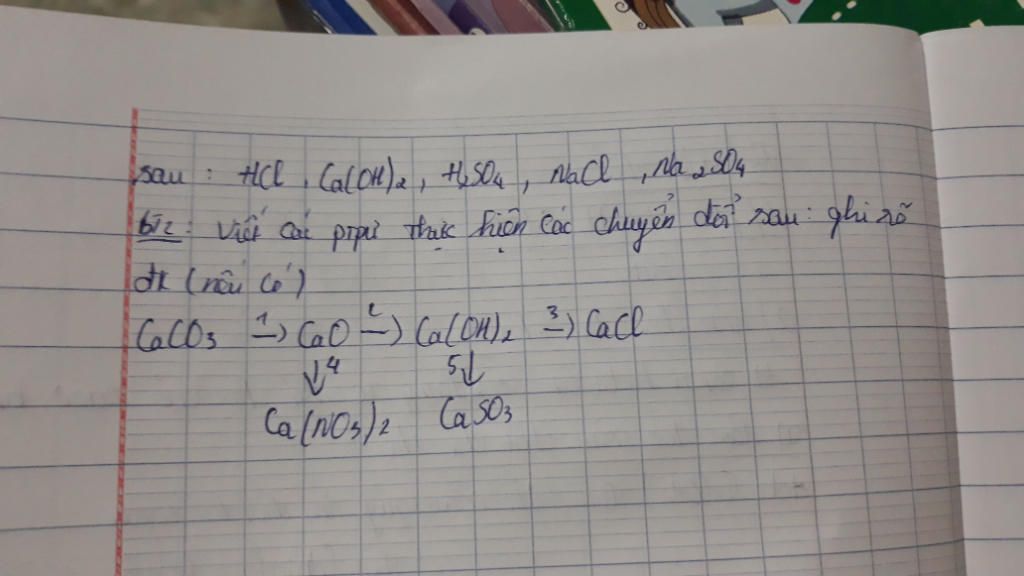 sau : HCl , Ca(OH)2 , H2SO4 , NaCl , Na2SO4
bt2 : Viết các ptpư thực hiện các chuyển đổi sau : ghi rõ
đk (nếu có)
CaCO3 1→ CaO 2→ Ca(OH)2 3→ CaCl
↓4 5↓
Ca(NO3)2 CaSO3